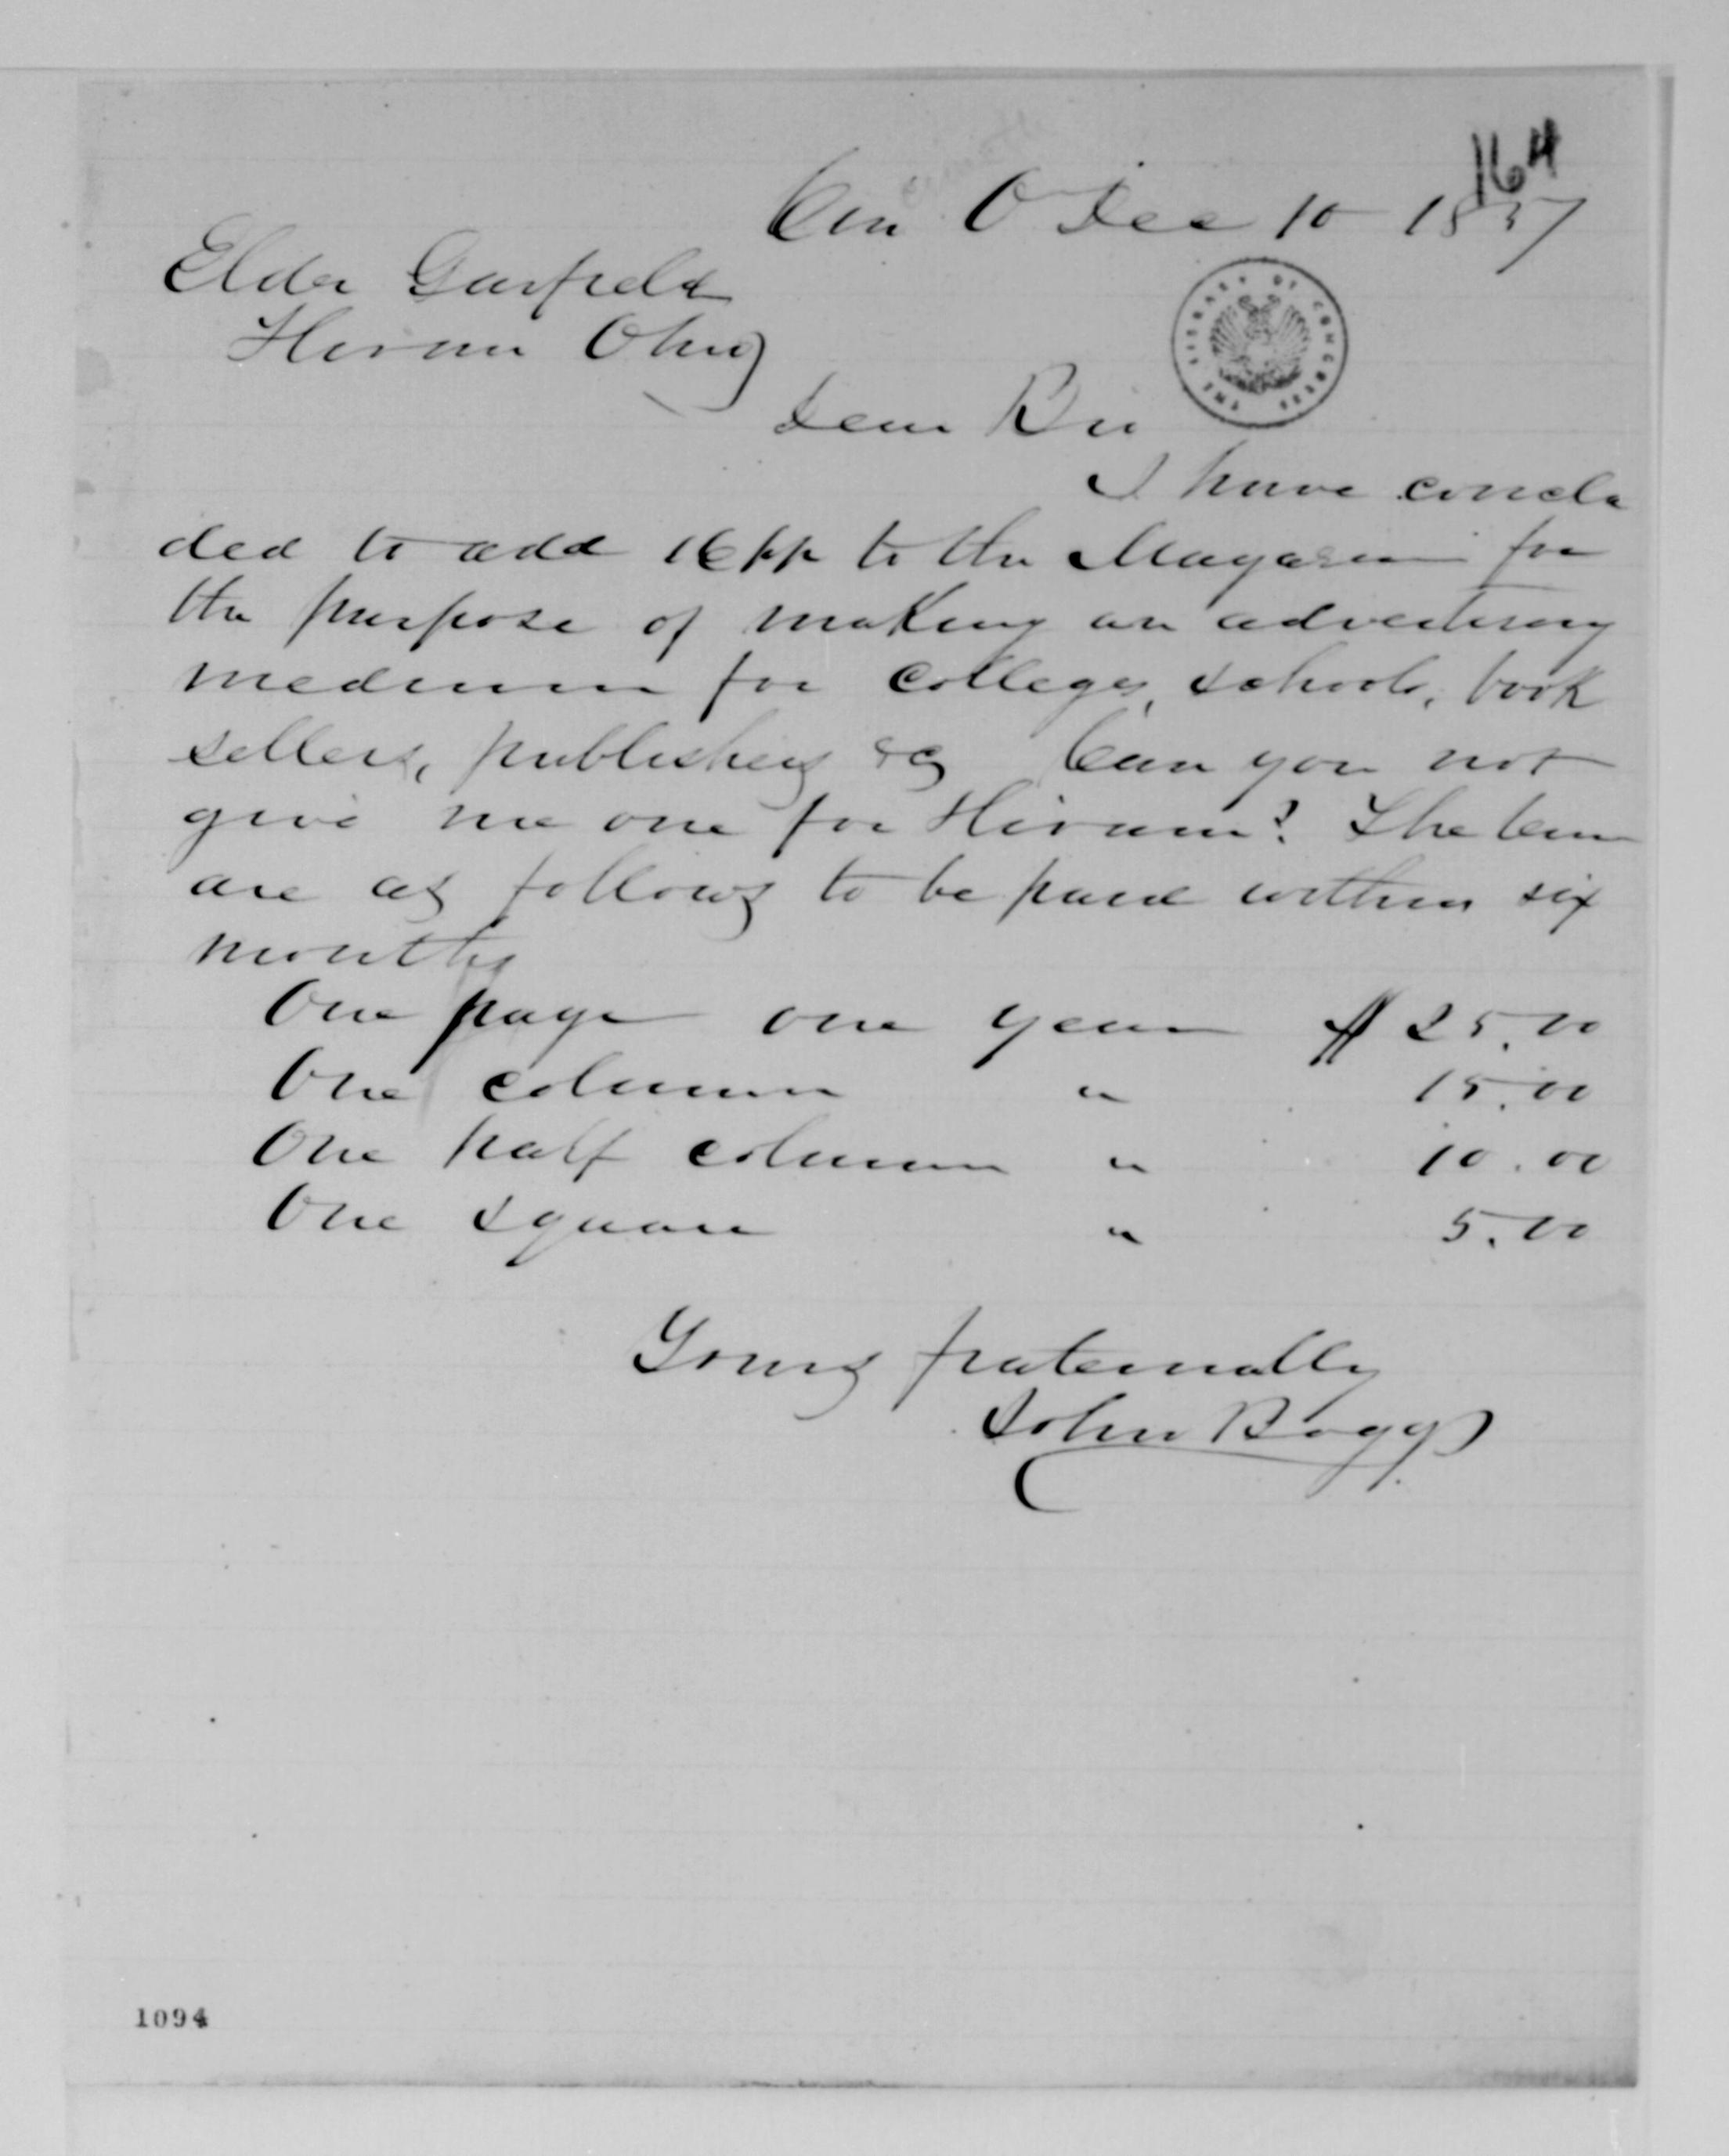 164
Cin O Dec 10 1857
Elder Garfield
Hiram Ohio
THE LIBRARY OF CONGRESS
Dear Bro
I have conclu
ded to add 16 pp to the Magazine for
the purpose of making an advertising
medium for colleges, schools, book
sellers, publishers &c Can you not
give me one for Hiram? The terms
are as follows to be paid within six
months
One page one year $ 25.00
One column " 15.00
One half column " 10.00
One square " 5.00
Yours fraternally
John Boggs
1094